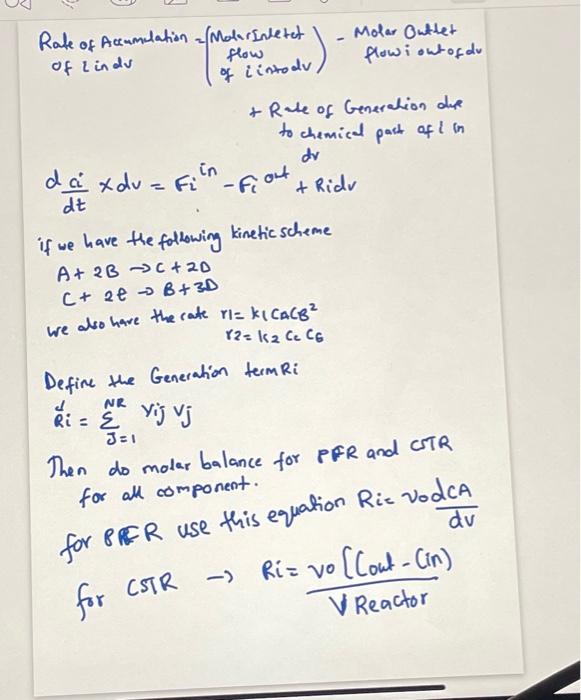 Rate of Accumulation = (Molar Inlet of - Molar Outlet
of i in dv flow flow i out of dv
of i into dv)
+ Rate of Generation due
to chemical part of i in
dv
d ci/dt x dv = Fi^in - Fi^out + Ridv
if we have the following kinetic scheme
A + 2B → C + 2D
C + 2E → B + 3D
we also have the rate r1 = k1 CA CB²
r2 = k2 Cc CE
Define the Generation term Ri
Ri = Σ NR J=1 γij γj
Then do molar balance for PFR and CSTR
for all component.
for PFR use this equation Ri = Vo dCA/dv
for CSTR → Ri = vo [Cout - Cin)
V Reactor